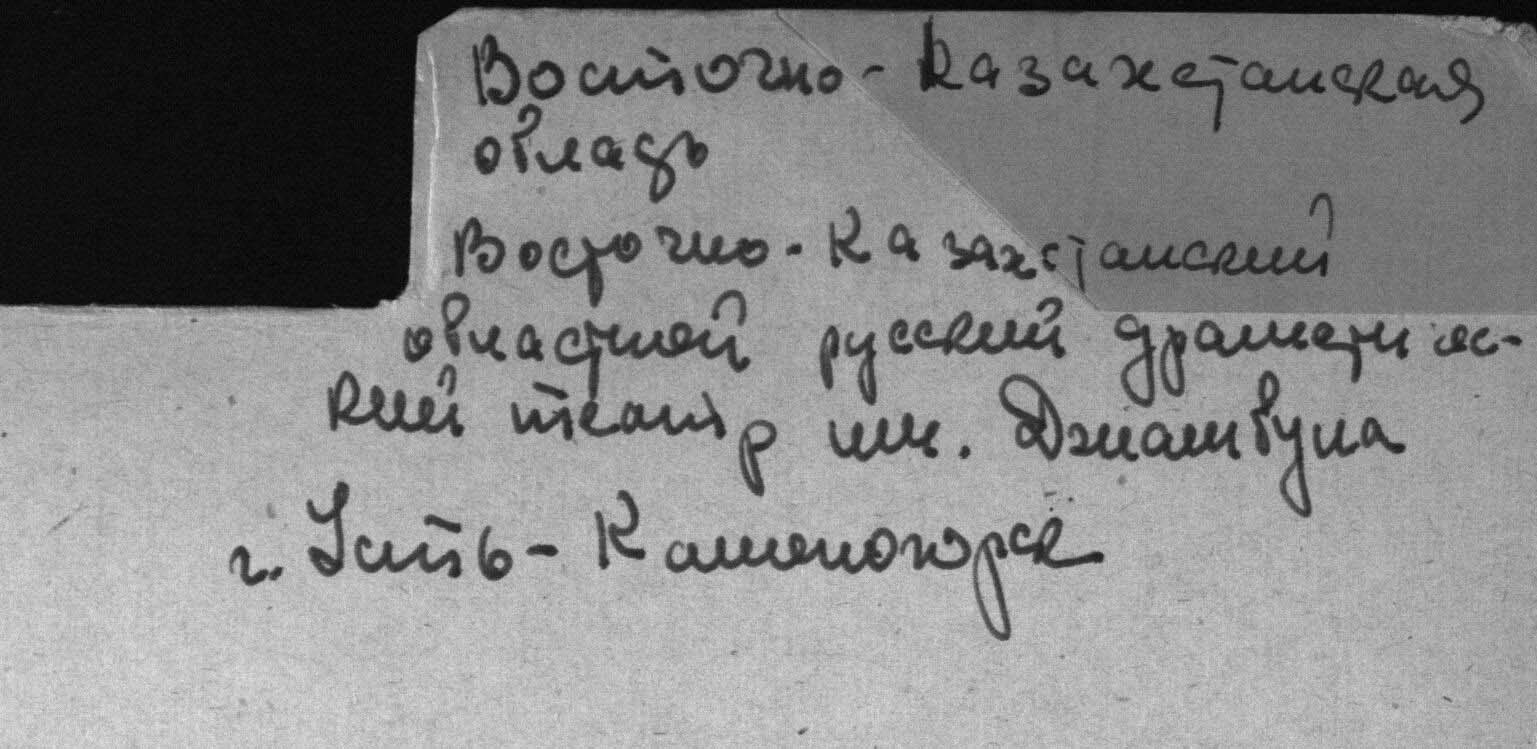 Восточно-Казахстанская
область
Восточно-Казахстанский
областной русский драматичес-
кий театр им. Джамбула
г. Усть-Каменогорск